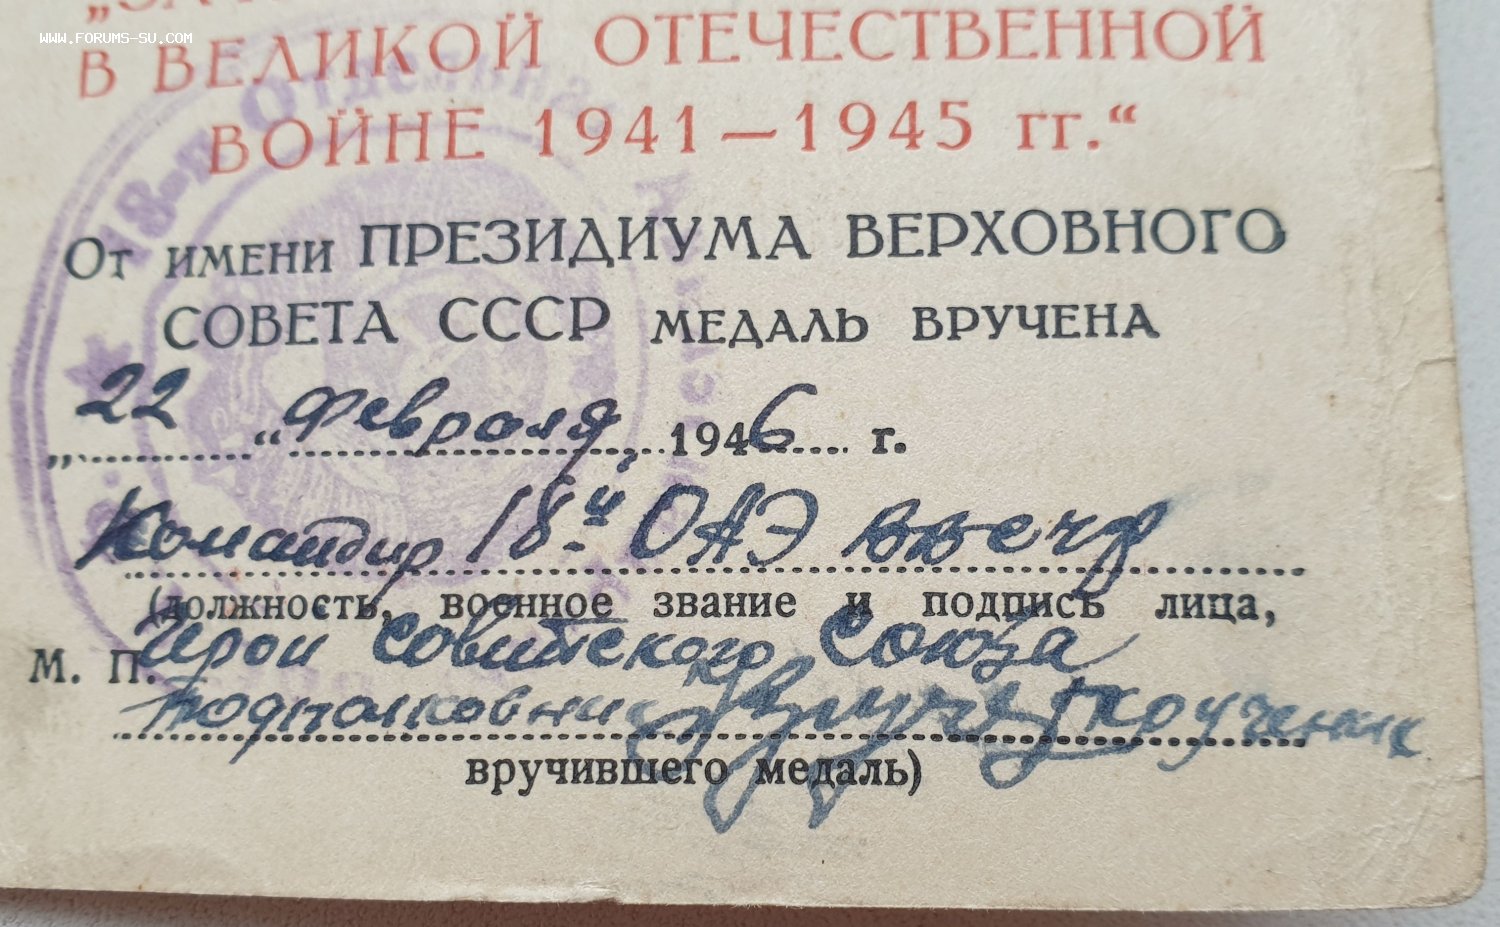 WWW.FORUMS-SU.COM
В ВЕЛИКОЙ ОТЕЧЕСТВЕННОЙ
ВОЙНЕ 1941—1945 гг.“
От имени ПРЕЗИДИУМА ВЕРХОВНОГО
СОВЕТА СССР МЕДАЛЬ ВРУЧЕНА
„22“ февраля 1946 г.
Командир 18й ОАЭ
(должность, военное звание и подпись лица,
М. П. Герой Советского Союза
подполковник
вручившего медаль)